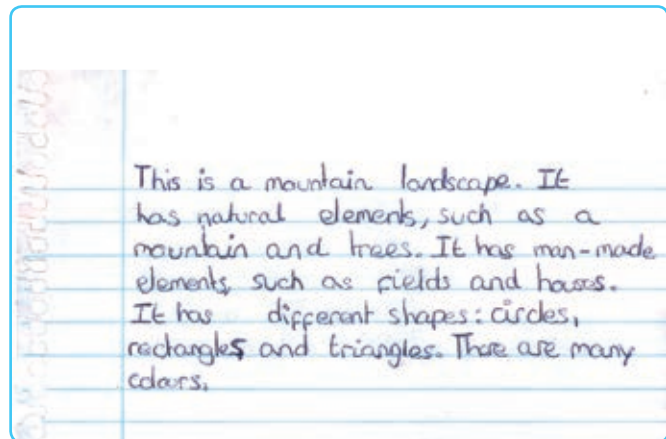 This is a mountain landscape. It
has natural elements, such as a
mountain and trees. It has man-made
elements, such as fields and houses.
It has different shapes: circles,
rectangles and triangles. There are many
colours.